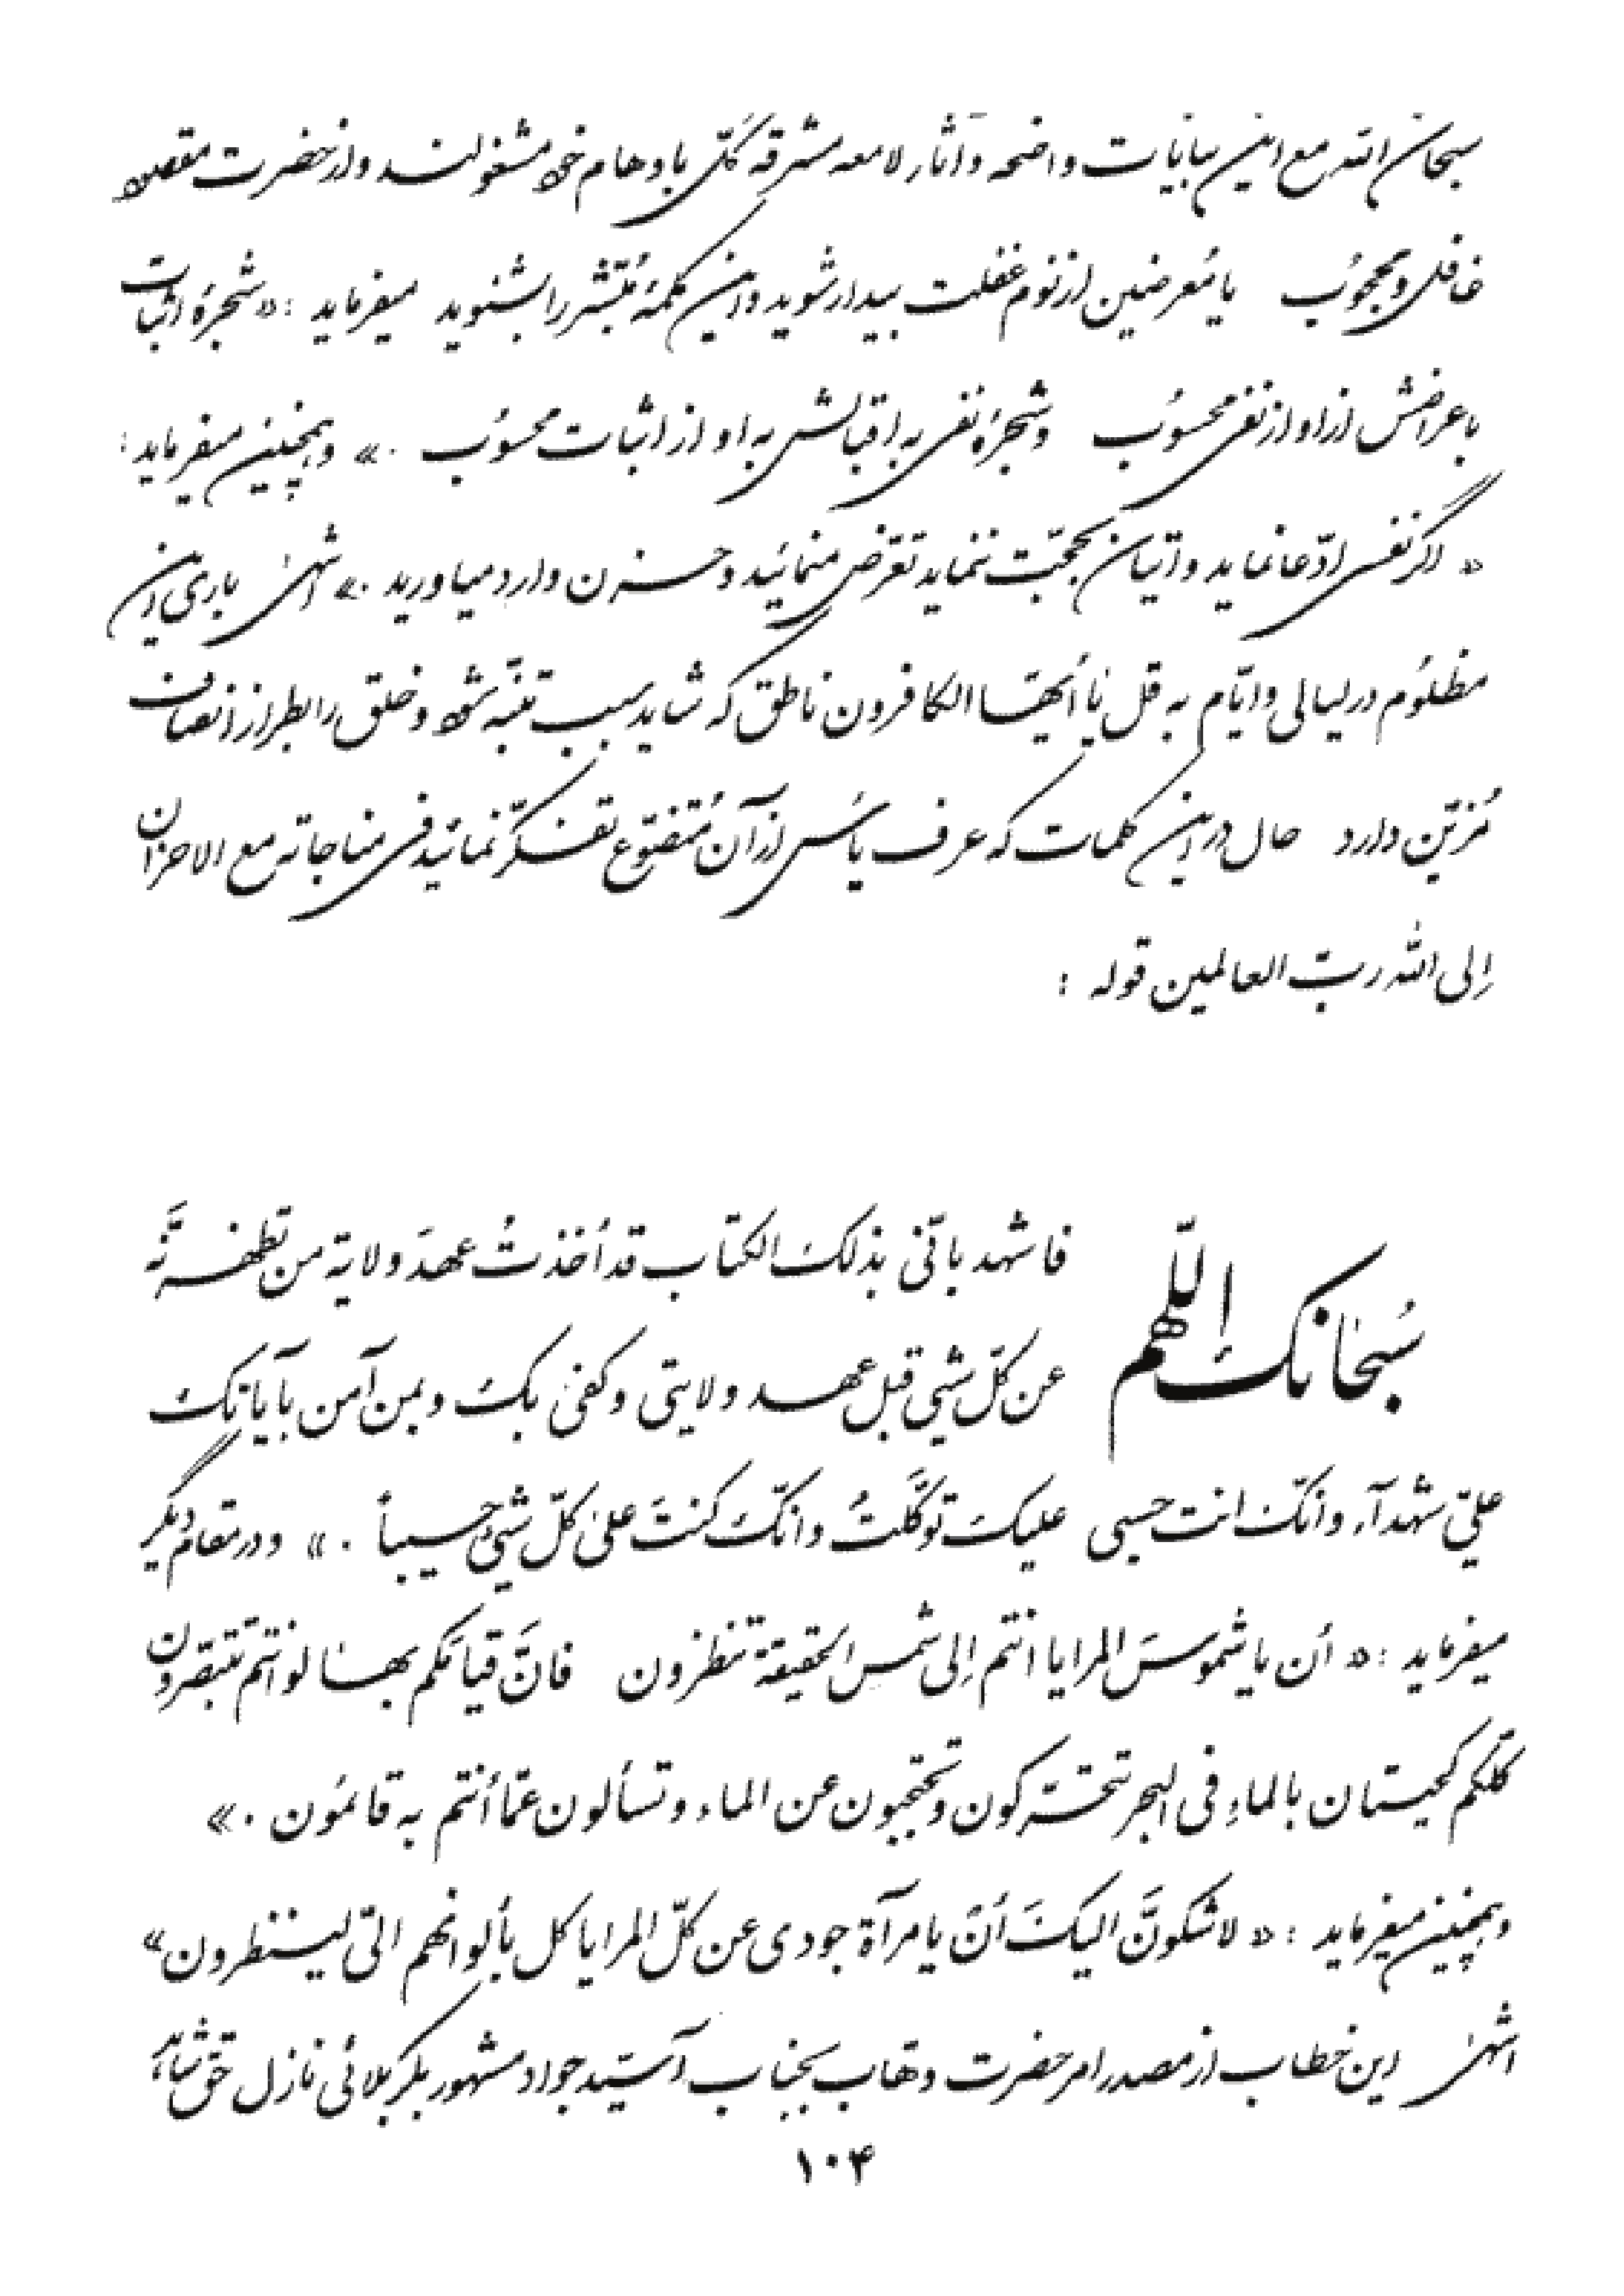 سبحان الله مع این بیانات واضحه و آثار لامعه مشرقه کلّ باوهام خود مشغولند و از حضرت مقصود
غافل و محجوُب یا مُعرضین از نوم غفلت بیدار شوید و این کلمهٔ مُبشّر را بشنوید میفرماید : « شجرهٔ اثبات
باعراضش از او از نفی محسوُب و شجرهٔ نفی به اقبالش به او از اثبات محسوُب . » و همچنین میفرماید :
« اگر نفسی ادّعا نماید و اتیان بحجّت ننماید تعرّض منمائید و حزن وارد میاورید . » انتهیٰ باری این
مظلوُم در لیالی و ایّام به قل یا أیّها الکافرون ناطق که شاید سبب تنبّه شود و خلق را بطراز انصاف
مُزیّن دارد حال در این کلمات که عرف یأس از آن مُتضوّع تفکّر نمائید فی مناجاته مع الاحزان
إلی الله ربّ العالمین قوله :
سُبحانک اللّهم فاشهد بانّنی بذلک الکتاب قد أخذتُ عهدَ ولایة من تظهرنَّه
عن کلّ شیٔ قبل عهد ولایتی وکفی بک وبمن آمن بآیاتک
علیّ شهدآء وانّک انت حسبی علیک توکّلتُ وانّک کنتَ علیٰ کلّ شیٔ حسیباً . » و در مقام دیگر
میفرماید : « أن یا شموسَ المرایا انتم إلی شمس الحقیقة تنظرون فانَّ قیامَکم بها لو انتم تتبصّرون
کلّکم کحیتان بالماءِ فی البحر تتحرّکون وتحتجبون عن الماء وتسألون عمّا أنتم به قائمُون . »
و همچنین میفرماید : « لاشکونَّ الیکَ أنْ یا مرآة جودی عن کلّ المرایا کل بألوانهم الیّ لینظرون »
انتهیٰ این خطاب از مصدر امر حضرت وهّاب بجناب آسیّد جواد مشهور بکربلائی نازل حقّ شاهد
١٠٤